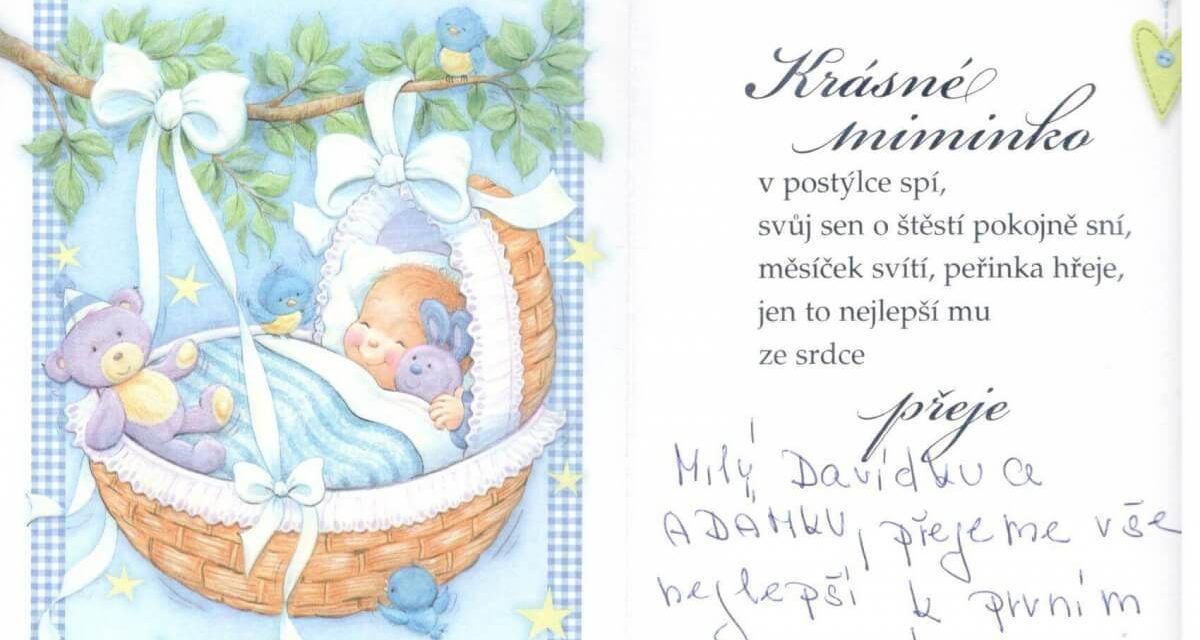 Krásné
miminko
v postýlce spí,
svůj sen o štěstí pokojně sní,
měsíček svítí, peřinka hřeje,
jen to nejlepší mu
ze srdce
přeje
Milý Davídku a
ADÁMKU, přejeme vše
nejlepší k prvním